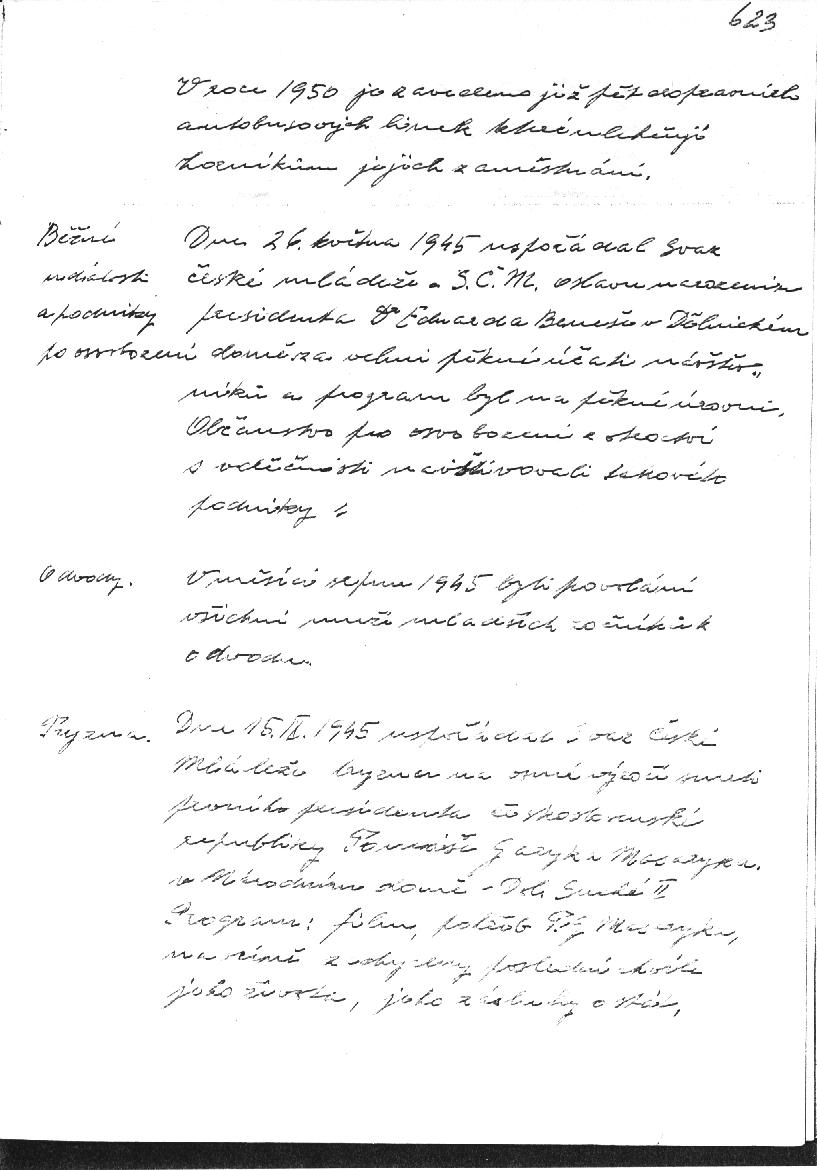 623
V roce 1950 je zavedeno již pět dopravních
autobusových linek které ulehčují
horníkům jejich zaměstnání.
Běžné
události
a podniky
po osvobození
Dne 26. května 1945 uspořádal Svaz
české mládeže - S.Č.M. oslavu narozenin
presidenta Dr Eduarda Beneše v Dělnickém
domě za velmi pěkné účasti návštěv„
níků a program byl na pěkné úrovni.
Občanstvo po osvobození s ochotou
s vděčností navštivovali takovéto
podniky
Odvody.
V měsíci srpnu 1945 byli povoláni
všichni muži mladších ročníků k
odvodu.
Tryzna.
Dne 15.IX.1945 uspořádal Svaz české
Mládeže tryznu na osmé výročí smrti
prvního presidenta československé
republiky Tomáše Garyka Masaryka.
v Národním domě - Dol. Suché II
Program: film, pohřeb T.G Masaryka,
na němž zachyceny poslední chvíle
jeho života, jeho zásluhy o stát,